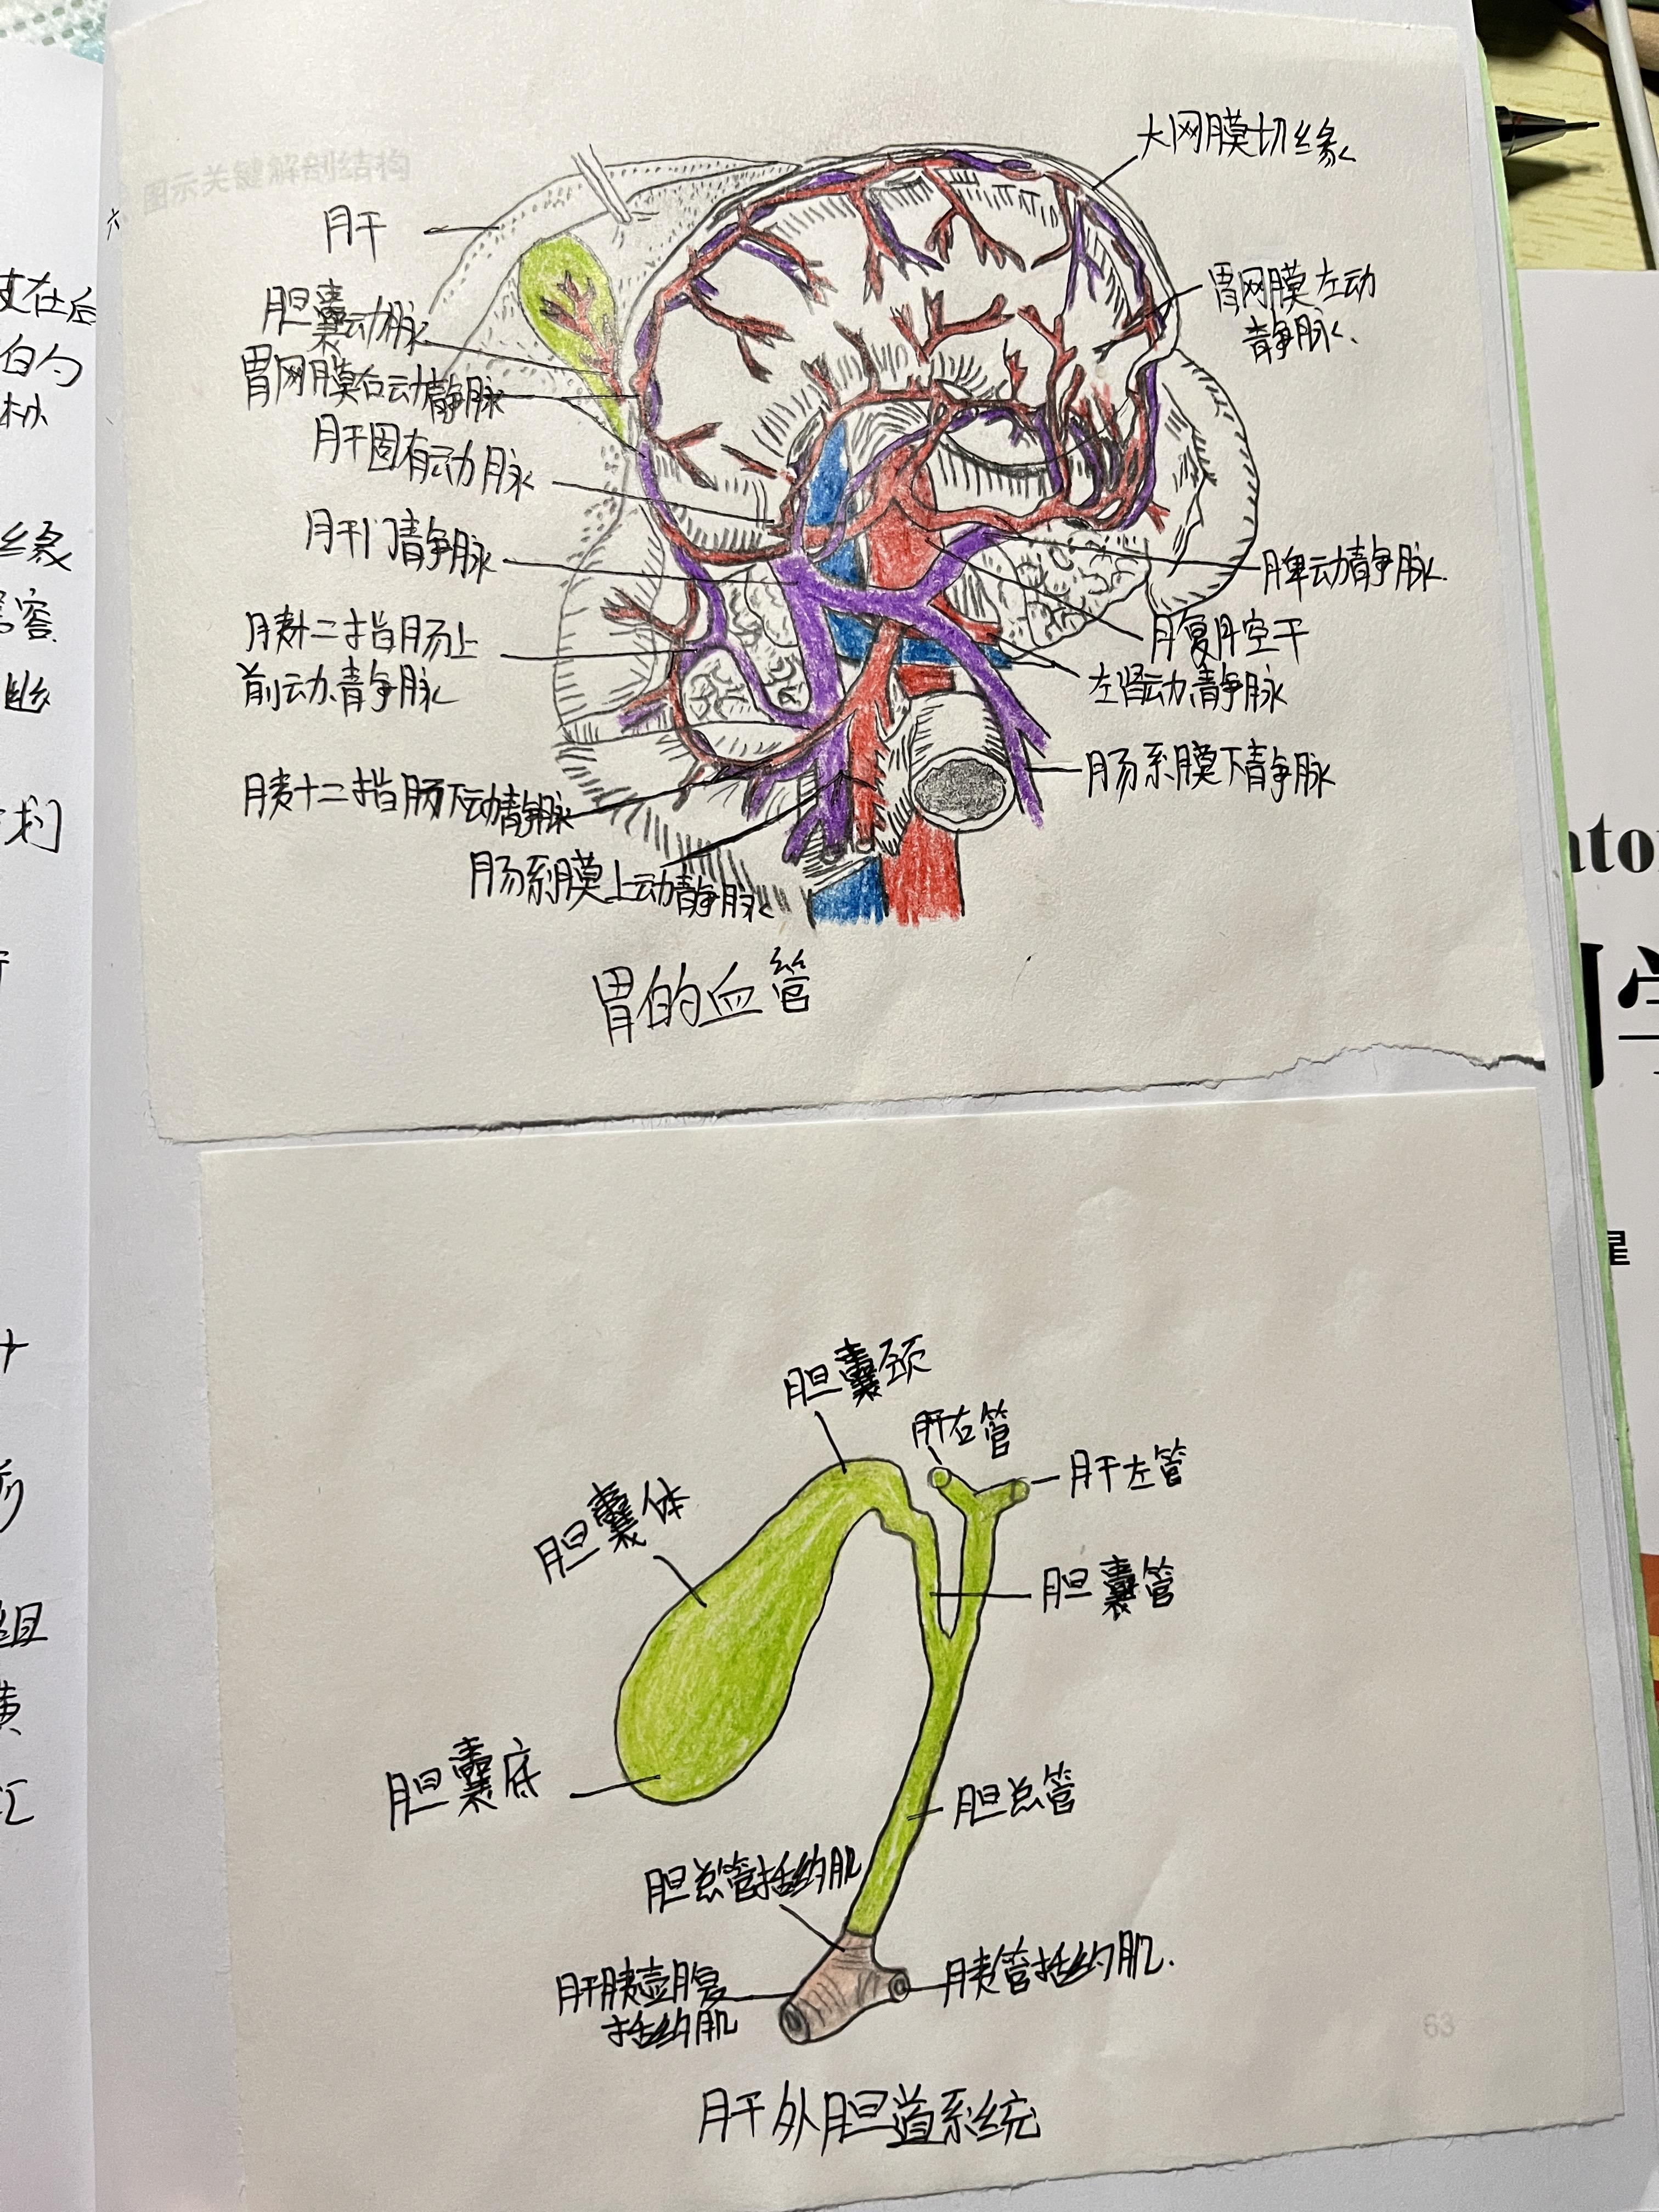 图示关键解剖结构
大网膜切缘
肝
胆囊动脉
胃网膜左动
静脉.
胃网膜右动静脉
肝固有动脉
肝门静脉
脾动静脉.
胰十二指肠上
前动.静脉
腹腔干
左肾动.静脉
肠系膜下静脉
胰十二指肠下动静脉
肠系膜上动静脉
胃的血管
胆囊颈
肝右管
肝左管
胆囊体
胆囊管
胆囊底
胆总管
胆总管括约肌
肝胰壶腹
括约肌
胰管括约肌.
63
肝外胆道系统
支在后
缘
容
划
组
汇
星